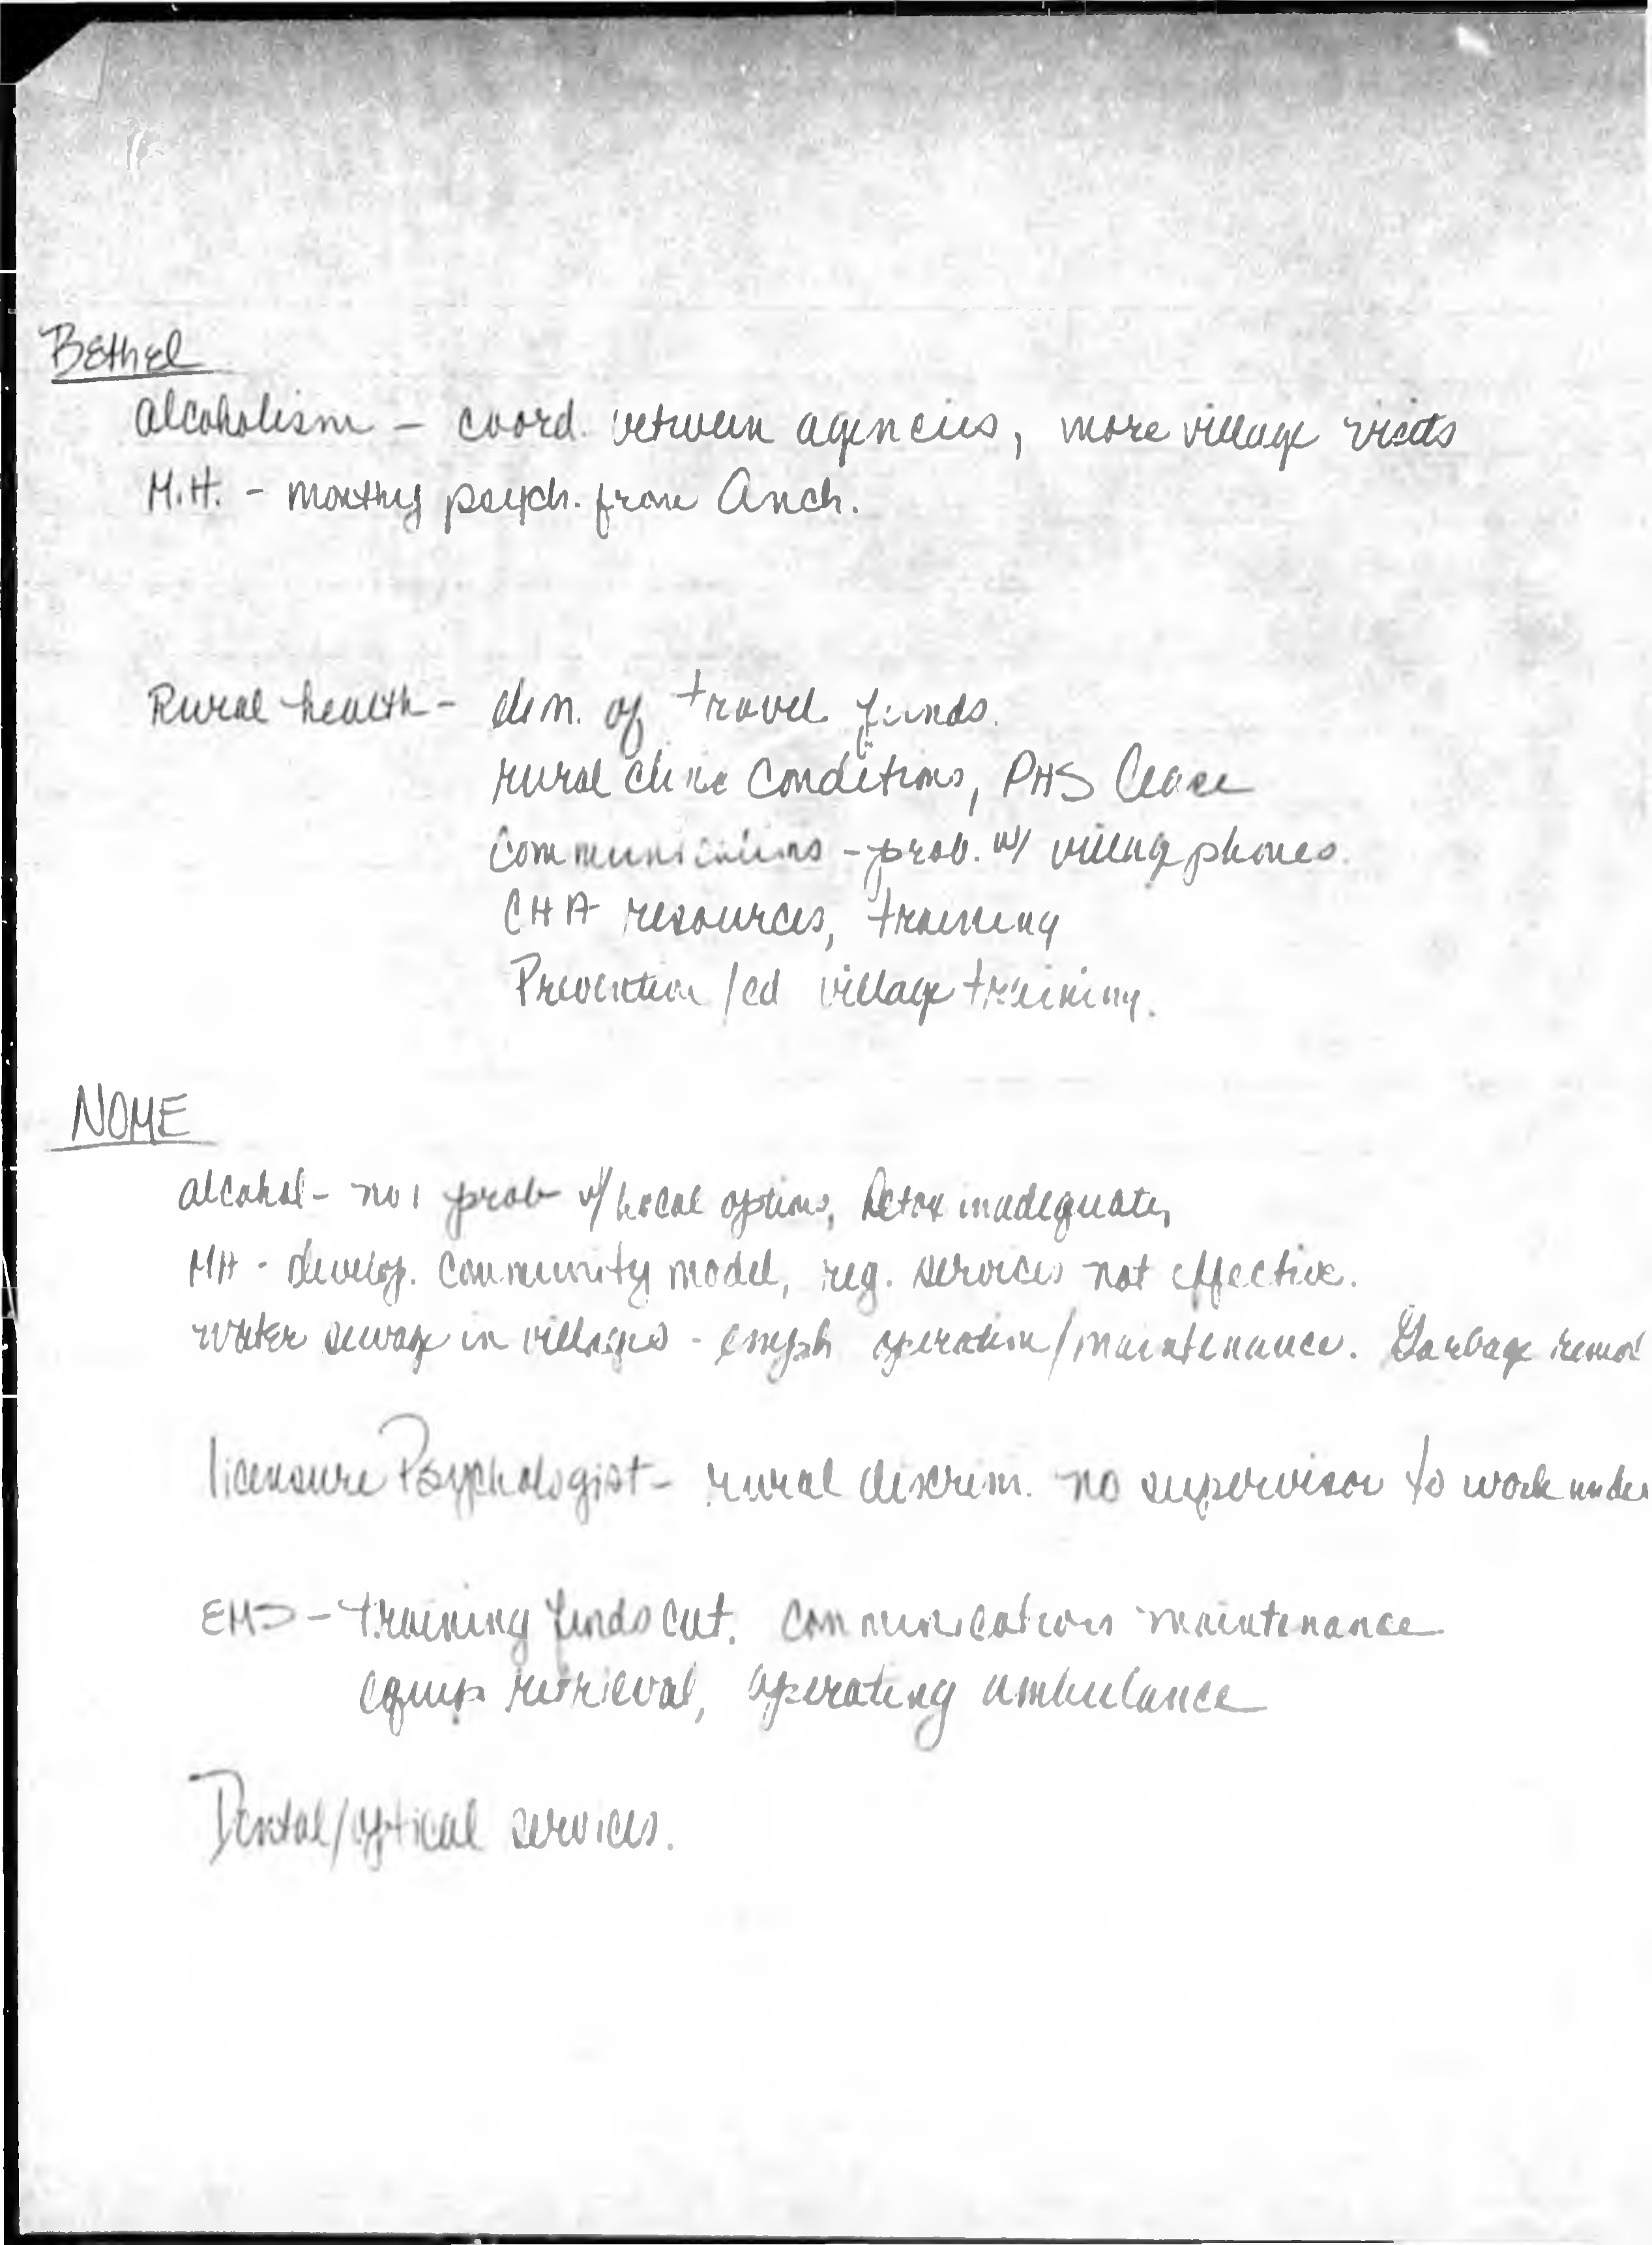 Bethel
alcoholism - coord. between agencies, more village visits
M.H. - monthly psych. from Anch.
Rural health - dim. of travel funds.
rural clinic conditions, PHS lease
communications - prob. w/ village phones.
CHA resources, training
Prevention/ed village training.
NOME
alcohol - no 1 prob w/ local options, Detox inadequate,
MH - develop. community model, reg. services not effective.
water sewage in villages - emph operation/maintenance. Garbage
licensure Psychologist - rural discrim. no supervisor to work under
EMS - training funds cut. communications maintenance
equip retrieval, operating ambulance
Dental/optical services.